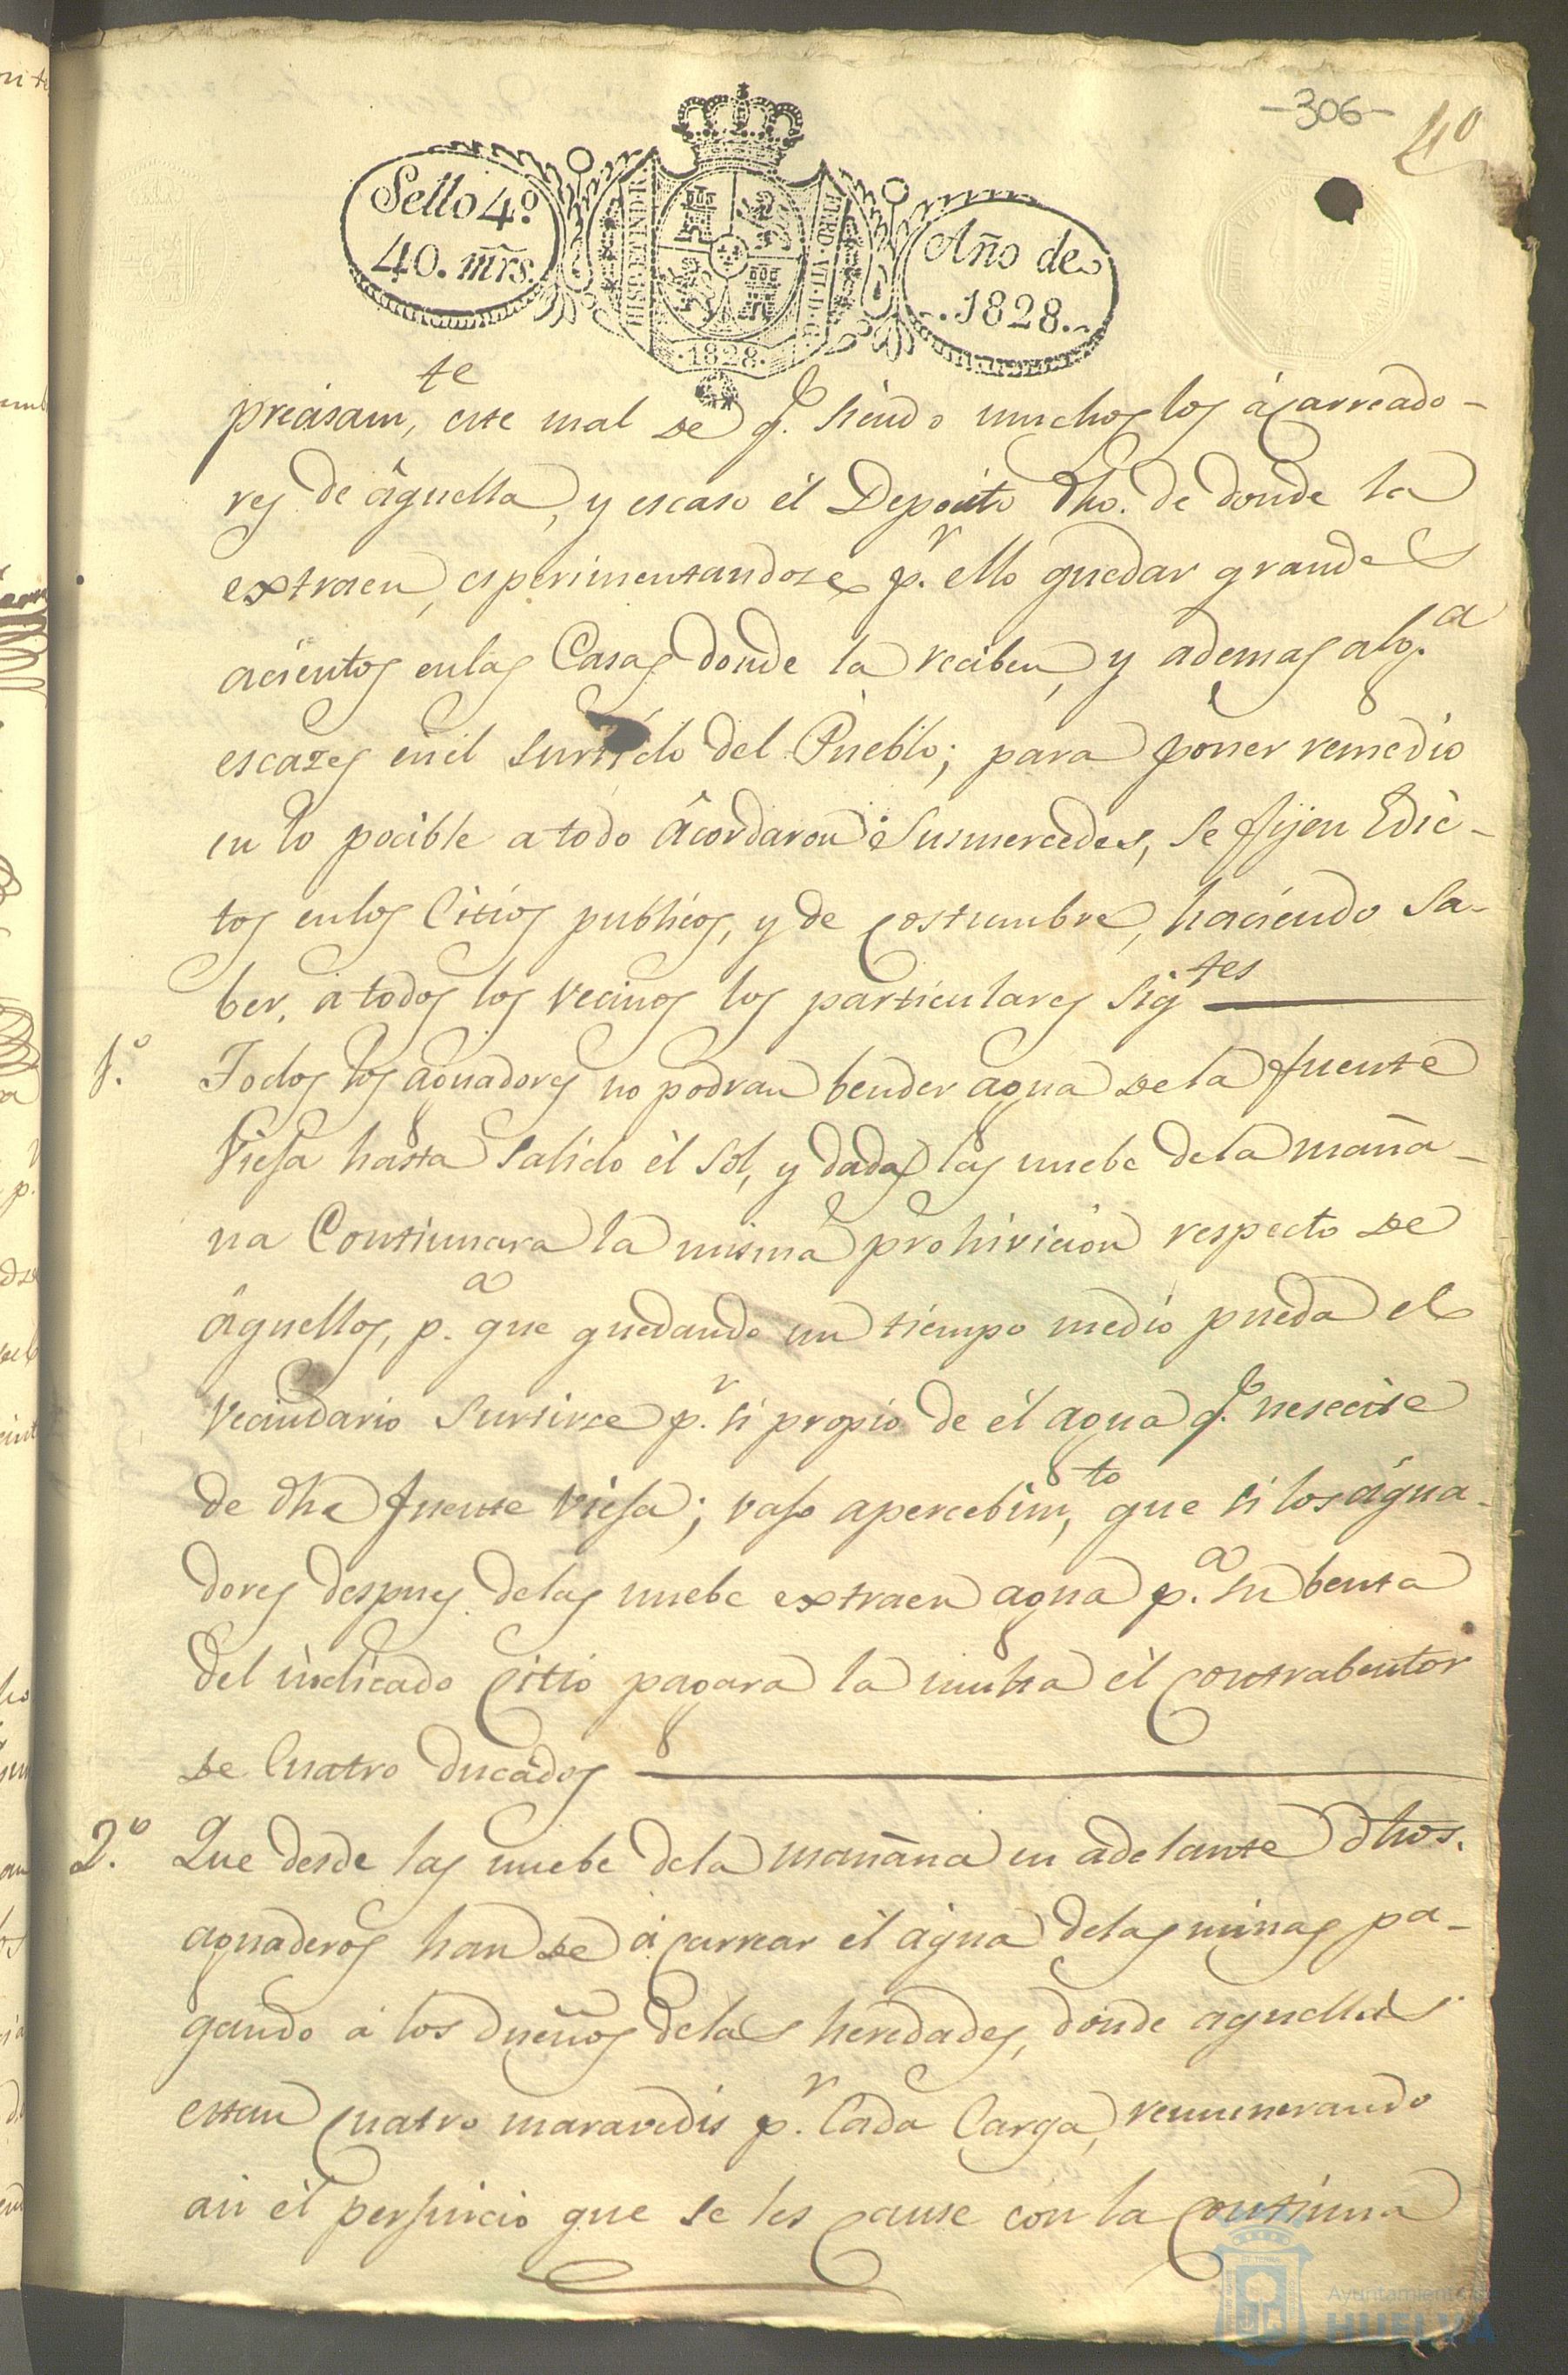 -306-
40
Sello 4º.
40. mrs.
HISP. ET IND. R.
FERD. VII. D. G.
·1828·
Año de
1828.
precisamte, este mal de q.e siendo muchos los ácarreado-
res de áquella, y escaso él Deposito dho. de donde la
extraen, esperimentandose p.r ello quedar grandes
acientos enlas Casas donde la reciben, y ademas alg.a
escazes en él surtido del Pueblo; para poner remedio
en lo pocible a todo ácordaron Susmercedes, se fijen Edic-
tos enlos Citios publicos, y de costumbre, haciendo sa-
ber, á todos los vecinos los particulares sigtes
1.º Todos los aguadores no podran bender agua de la fuente
Viesa hasta salido él Sol, y dadas las nuebe dela maña-
na Continuara la misma prohivicion respecto de
áquellos, p.a que quedando un tiempo medio pueda el
vecindario surtirse p.r si propio de él agua q.e nesecite
de dha fuente Viesa; vajo apercebimto, que si los água-
dores despues delas nuebe extraen agua p.a su benta
del indicado Citio pagara la multa él contrabentor
de Cuatro ducados
2.º Que desde las nuebe dela mañana en adelante dhos.
aguaderos han de ácarrear él água delas minas pa-
gando á los dueños delas heredades, donde aquellas
estan Cuatro maravedis p.r Cada Carga, remunerando
asi él perjuicio que se les cause con la Continua
Ayuntamiento de
HUELVA